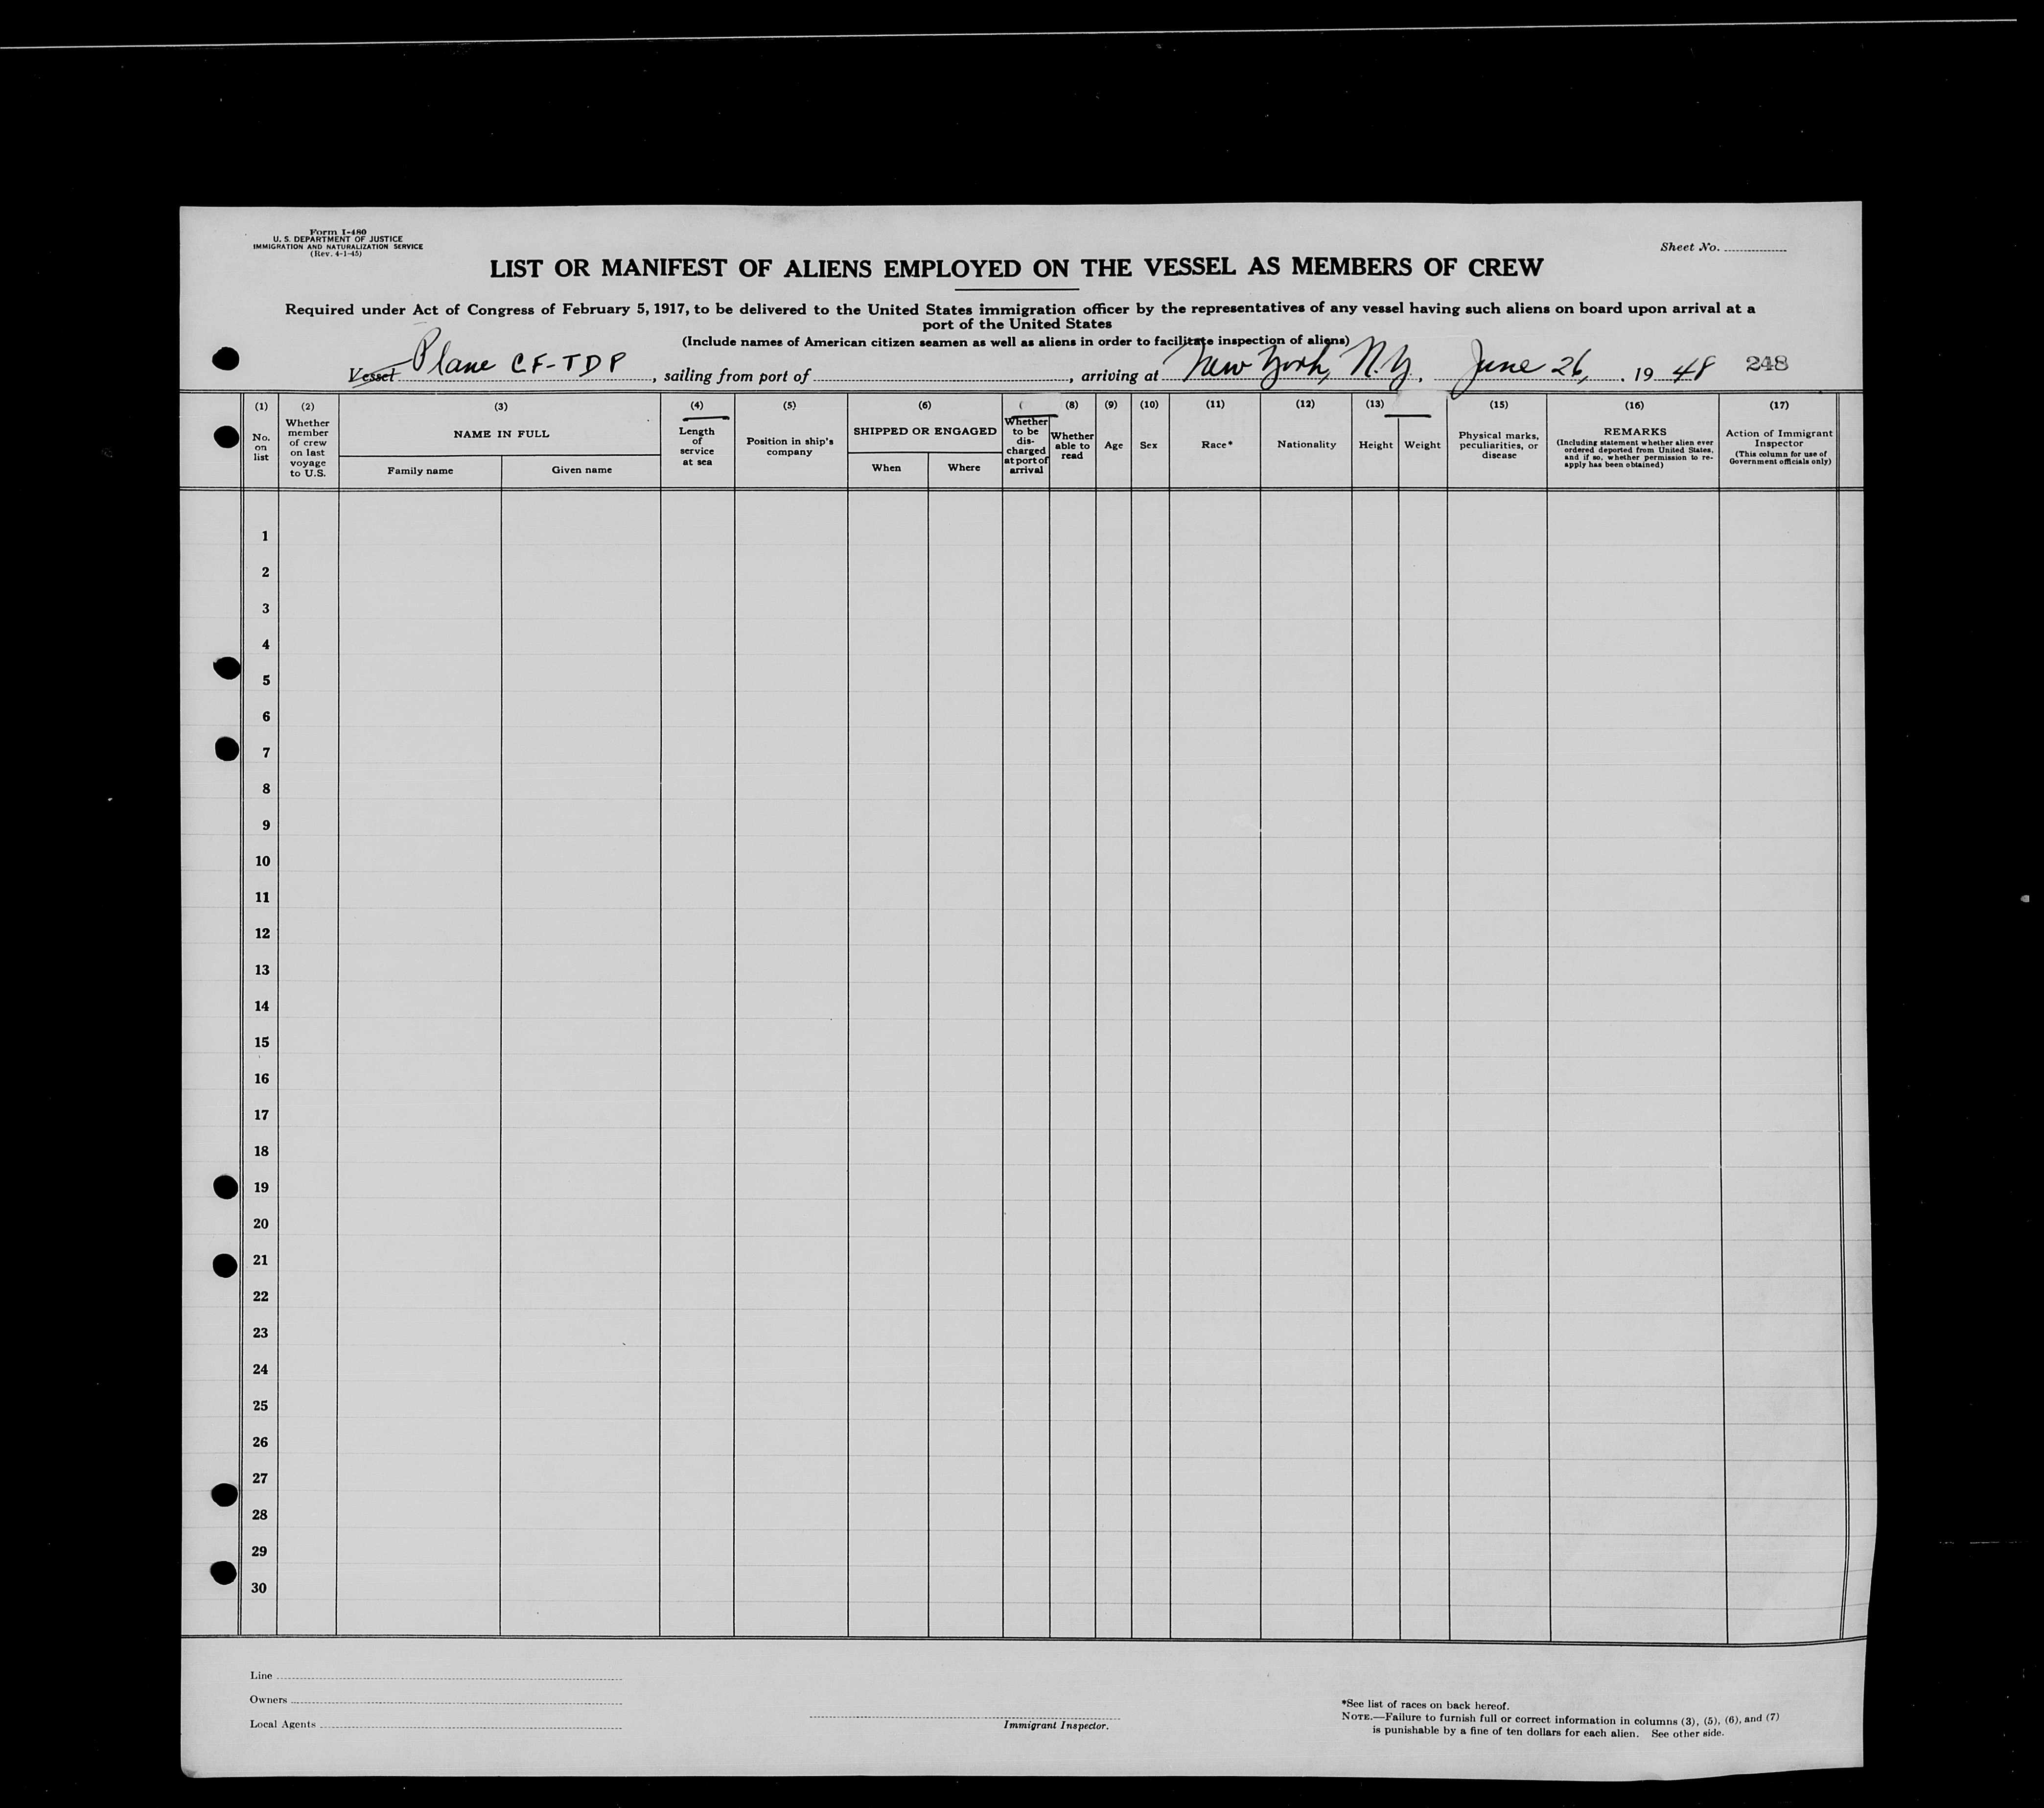 Form I-480
U. S. DEPARTMENT OF JUSTICE
IMMIGRATION AND NATURALIZATION SERVICE
(Rev. 4-1-45)
Sheet No.
LIST OR MANIFEST OF ALIENS EMPLOYED ON THE VESSEL AS MEMBERS OF CREW
Required under Act of Congress of February 5, 1917, to be delivered to the United States immigration officer by the representatives of any vessel having such aliens on board upon arrival at a
port of the United States
(Include names of American citizen seamen as well as aliens in order to facilitate inspection of aliens)
Vessel Plane CF-TDP, sailing from port of, arriving at New York, N.Y., June 26, 1948 248
(1) (2) (3) (4) (5) (6) ( (8) (9) (10) (11) (12) (13) (15) (16) (17)
No.
on
list
Whether
member
of crew
on last
voyage
to U.S.
NAME IN FULL
Family name Given name
Length
of
service
at sea
Position in ship's
company
SHIPPED OR ENGAGED
When Where
Whether
to be
dis-
charged
at port of
arrival
Whether
able to
read
Age
Sex
Race*
Nationality
Height
Weight
Physical marks,
peculiarities, or
disease
REMARKS
(Including statement whether alien ever
ordered deported from United States,
and if so, whether permission to re-
apply has been obtained)
Action of Immigrant
Inspector
(This column for use of
Government officials only)
1
2
3
4
5
6
7
8
9
10
11
12
13
14
15
16
17
18
19
20
21
22
23
24
25
26
27
28
29
30
Line
Owners
Local Agents
Immigrant Inspector.
*See list of races on back hereof.
NOTE.—Failure to furnish full or correct information in columns (3), (5), (6), and (7)
is punishable by a fine of ten dollars for each alien. See other side.